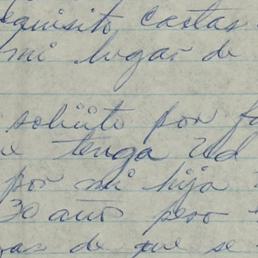 equisito cartas
mi lugar de
solicito por fa
e tenga Ud
por mi hija
30 años pero
de que se